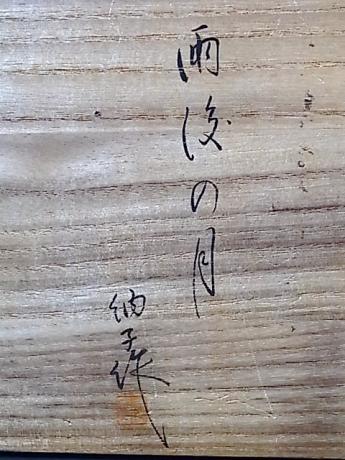 雨後の月
納子作